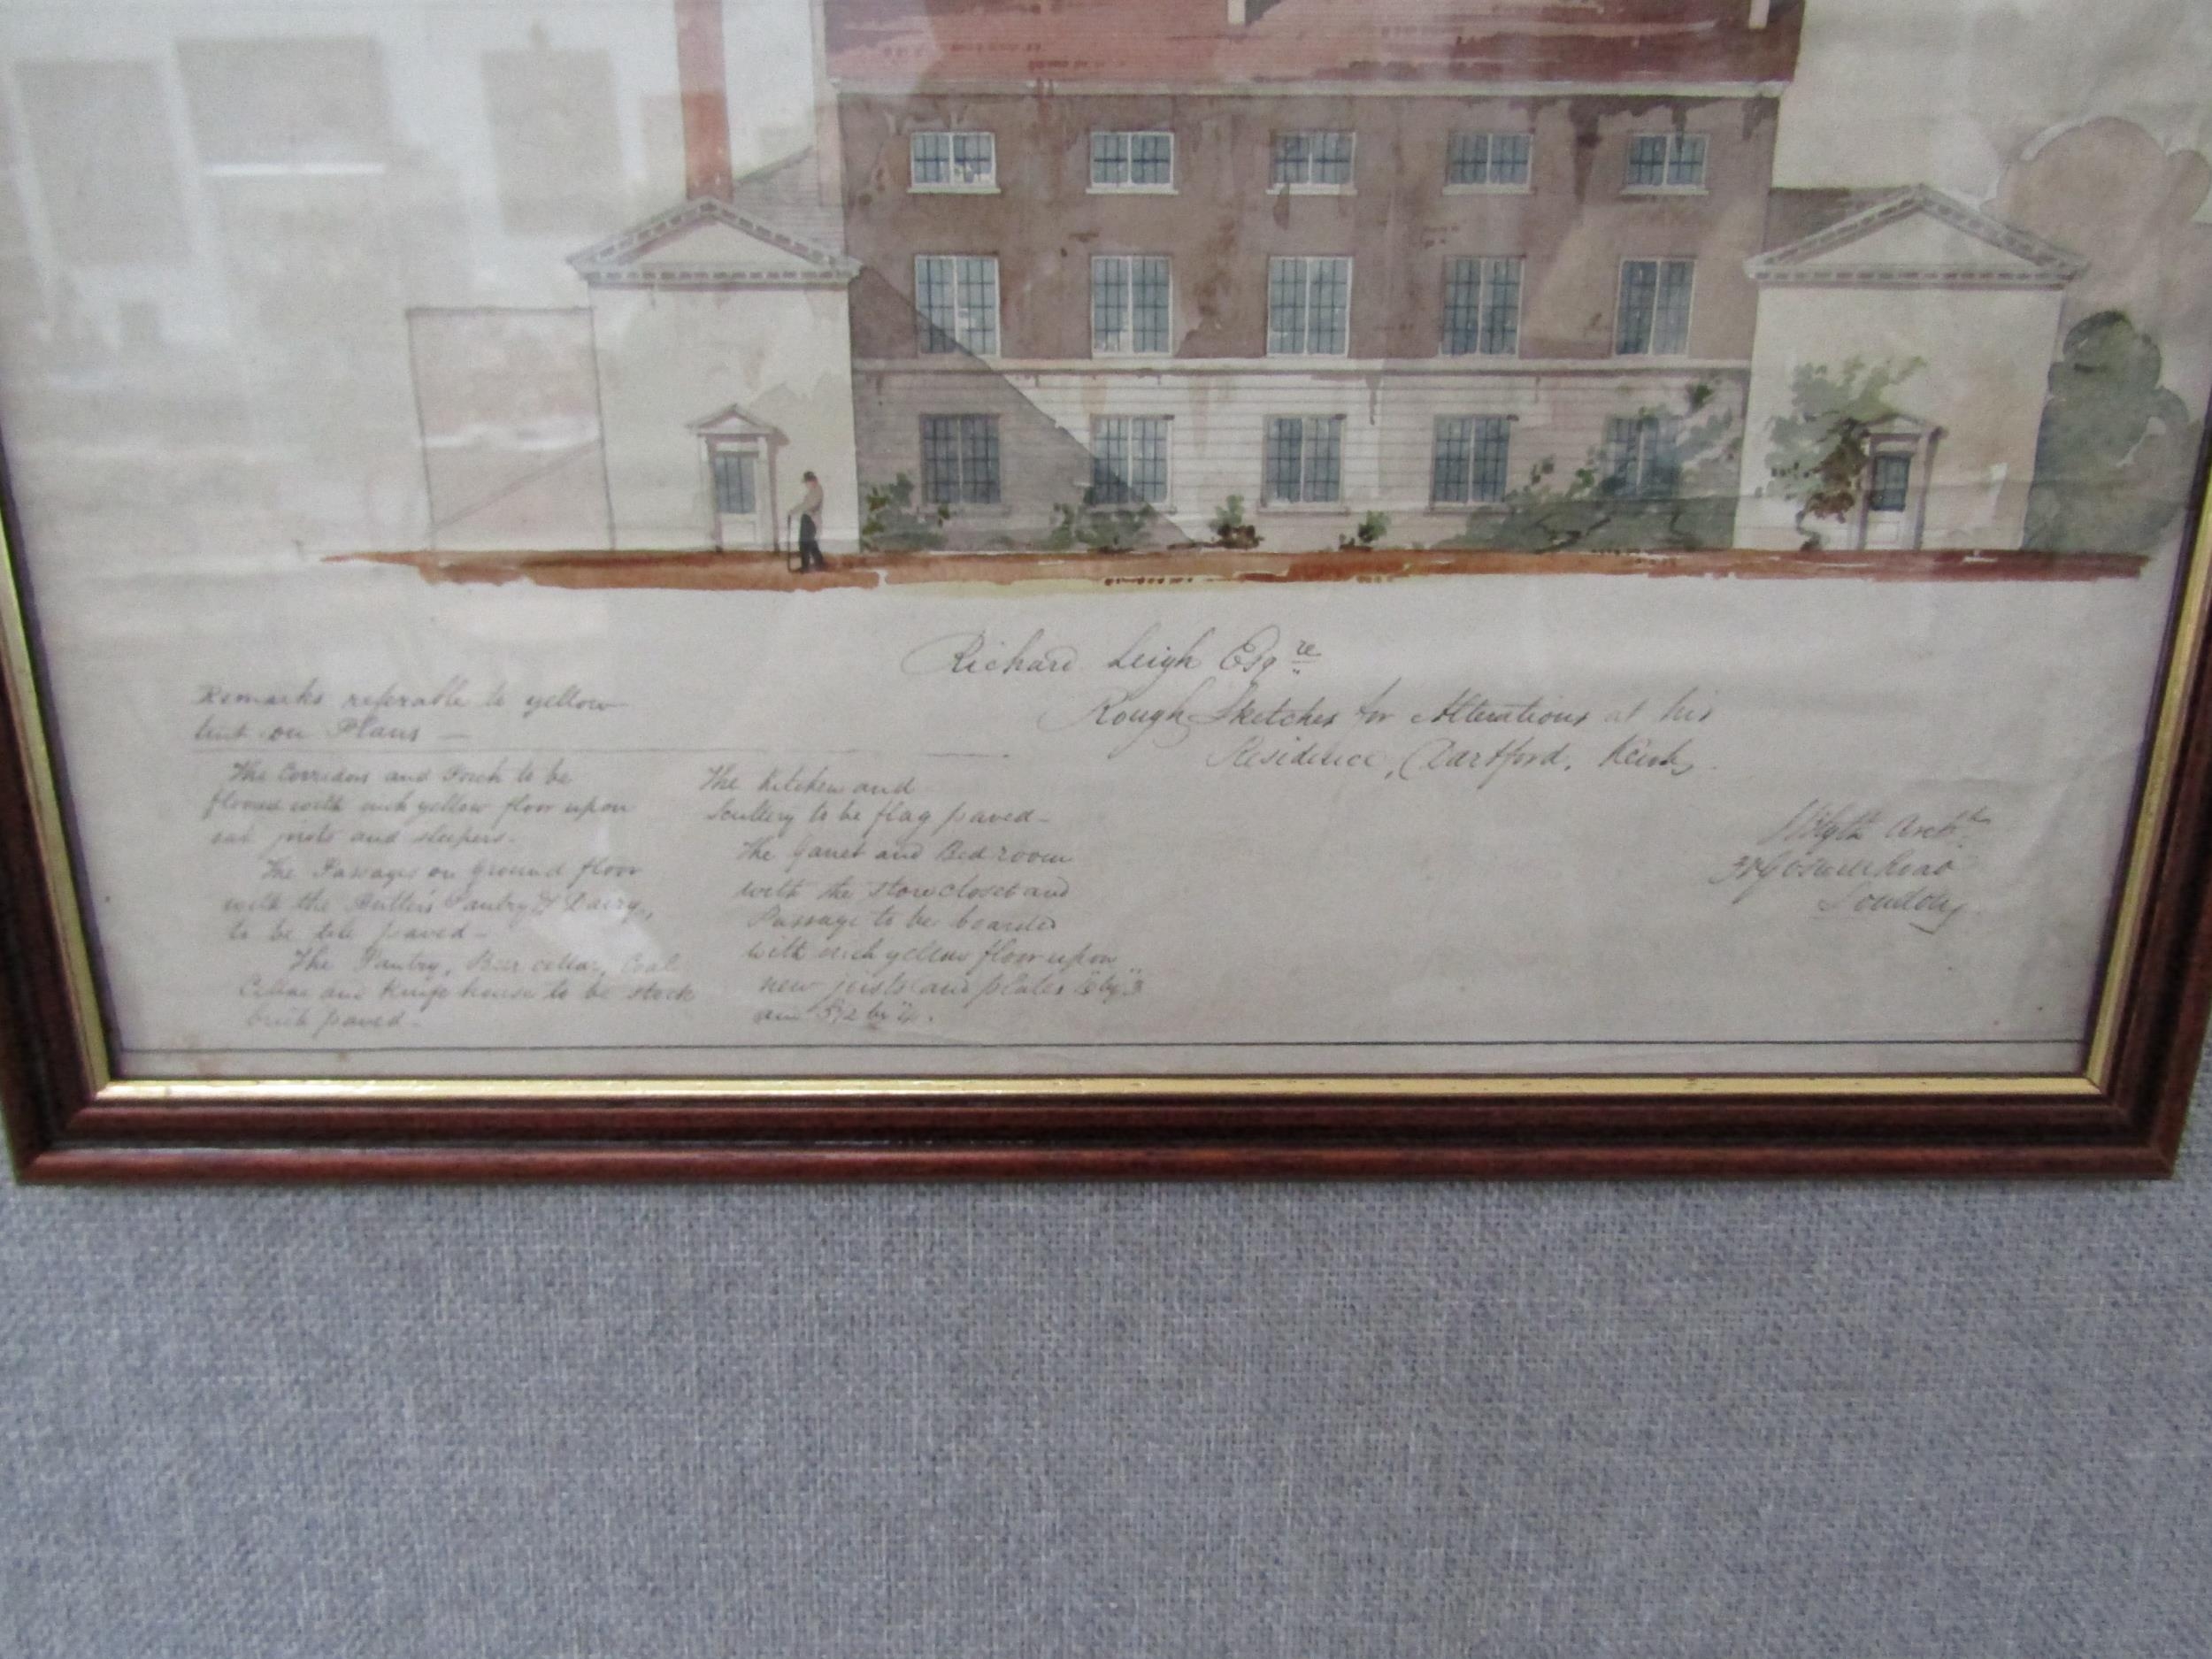 Richard Leigh Esqre
Rough Sketches for Alterations at his
Residence, Dartford, Kent,
Blyth Archt
Goswell Road
London
Remarks referable to yellow
tint on Plans —
The Corridors and Porch to be
floored with inch yellow floor upon
oak joists and sleepers.
The Passages on Ground floor
with the Butler's Pantry & Dairy,
to be tile paved —
The Pantry, Beer cellar, Coal
Cellar and Knife house to be stock
brick paved —
The Kitchen and
Scullery to be flag paved —
The Garret and Bed room
with the store closet and
Passage to be boarded
with inch yellow floor upon
new joists and plates 6 by 3